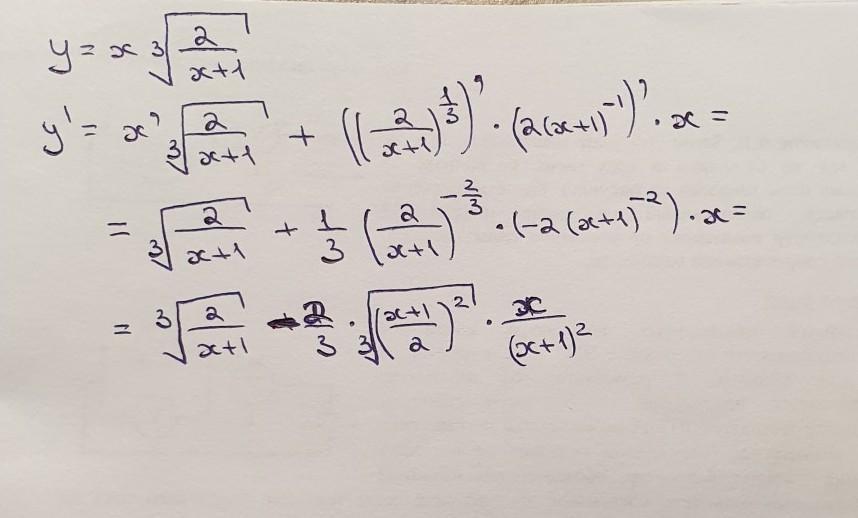 y = x ∛(2/(x+1))
y' = x' ∛(2/(x+1)) + ((2/(x+1))^(1/3))' · (2(x+1)^(-1))' · x =
= ∛(2/(x+1)) + 1/3 (2/(x+1))^(-2/3) · (-2(x+1)^(-2)) · x =
= ∛(2/(x+1)) - 2/3 · ∛(((x+1)/2)^2) · x/(x+1)^2